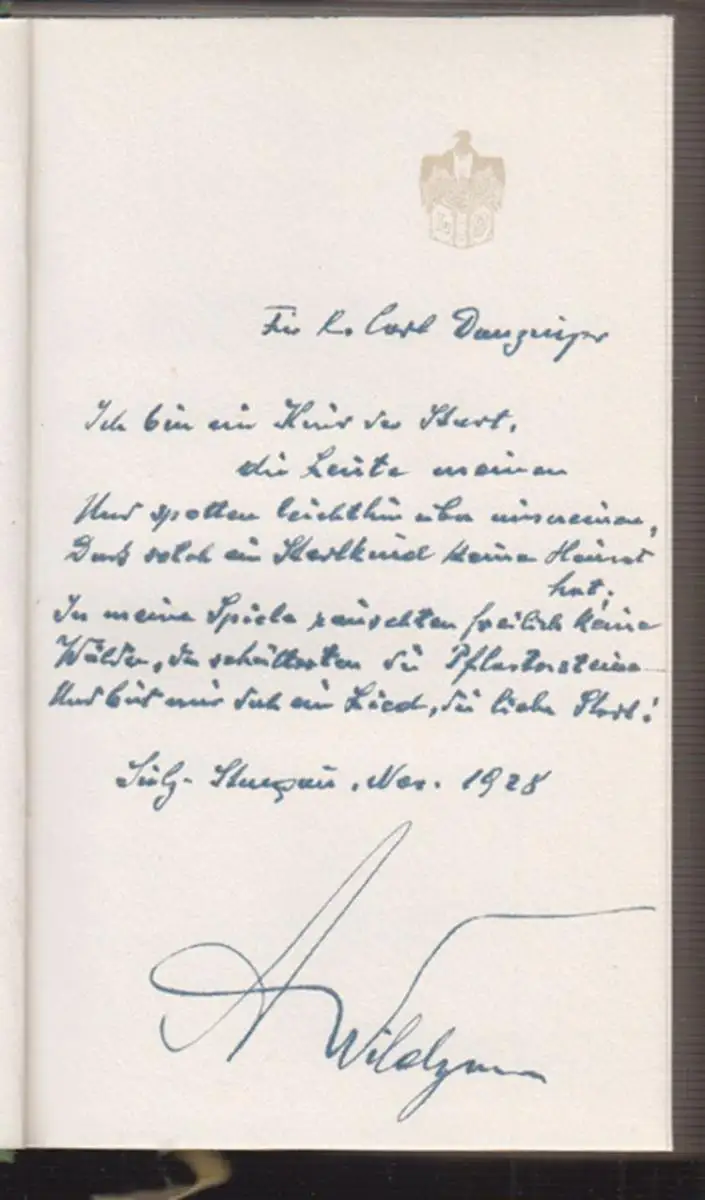 Für Carl Danzinger
Ich bin ein Kind der Stadt,
die Leute meinen
Und spotten leichthin über unsereinen,
Daß solch ein Stadtkind keine Heimat
hat.
In meine Spiele rauschten freilich keine
Wälder, da schütterten die Pflastersteine
Und bist mir doch ein Lied, du liebe Stadt!
Sulz-Stangau, Nov. 1928
A Wildgans